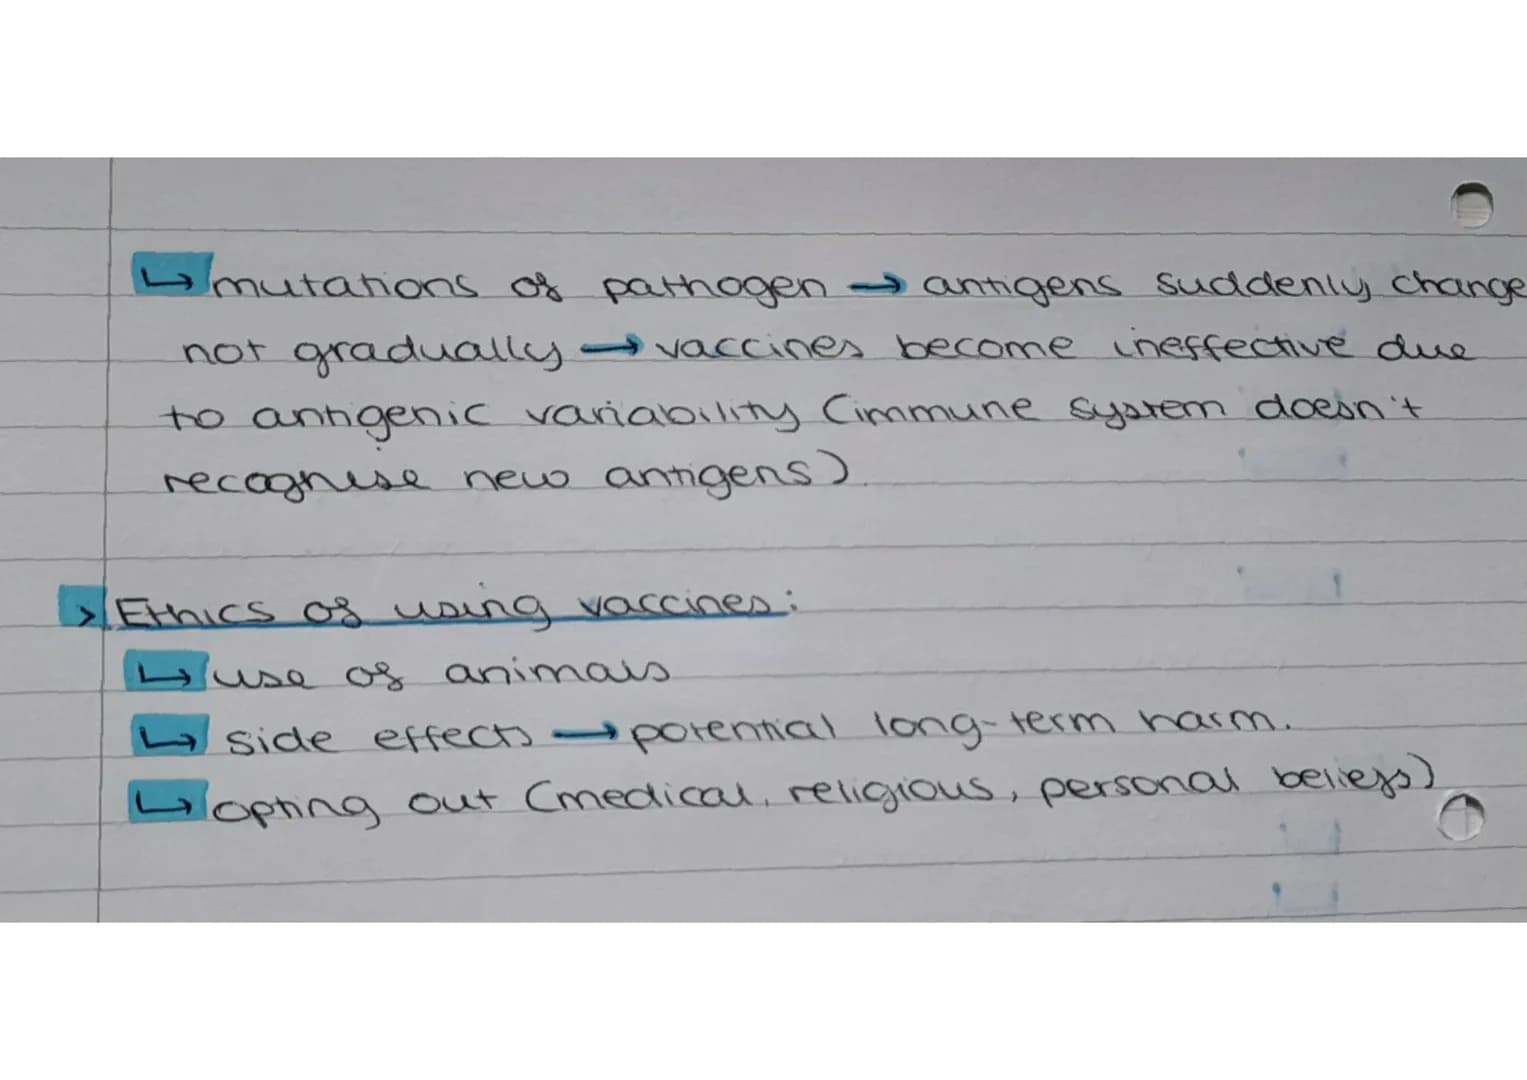 ↳ mutations of pathogen → antigens suddenly change
not gradually → vaccines become ineffective due
to antigenic variability (immune system doesn't
recognise new antigens).
> Ethics of using vaccines:
↳ use of animals
↳ side effects → potential long-term harm.
↳ opting out (medical, religious, personal beliefs)